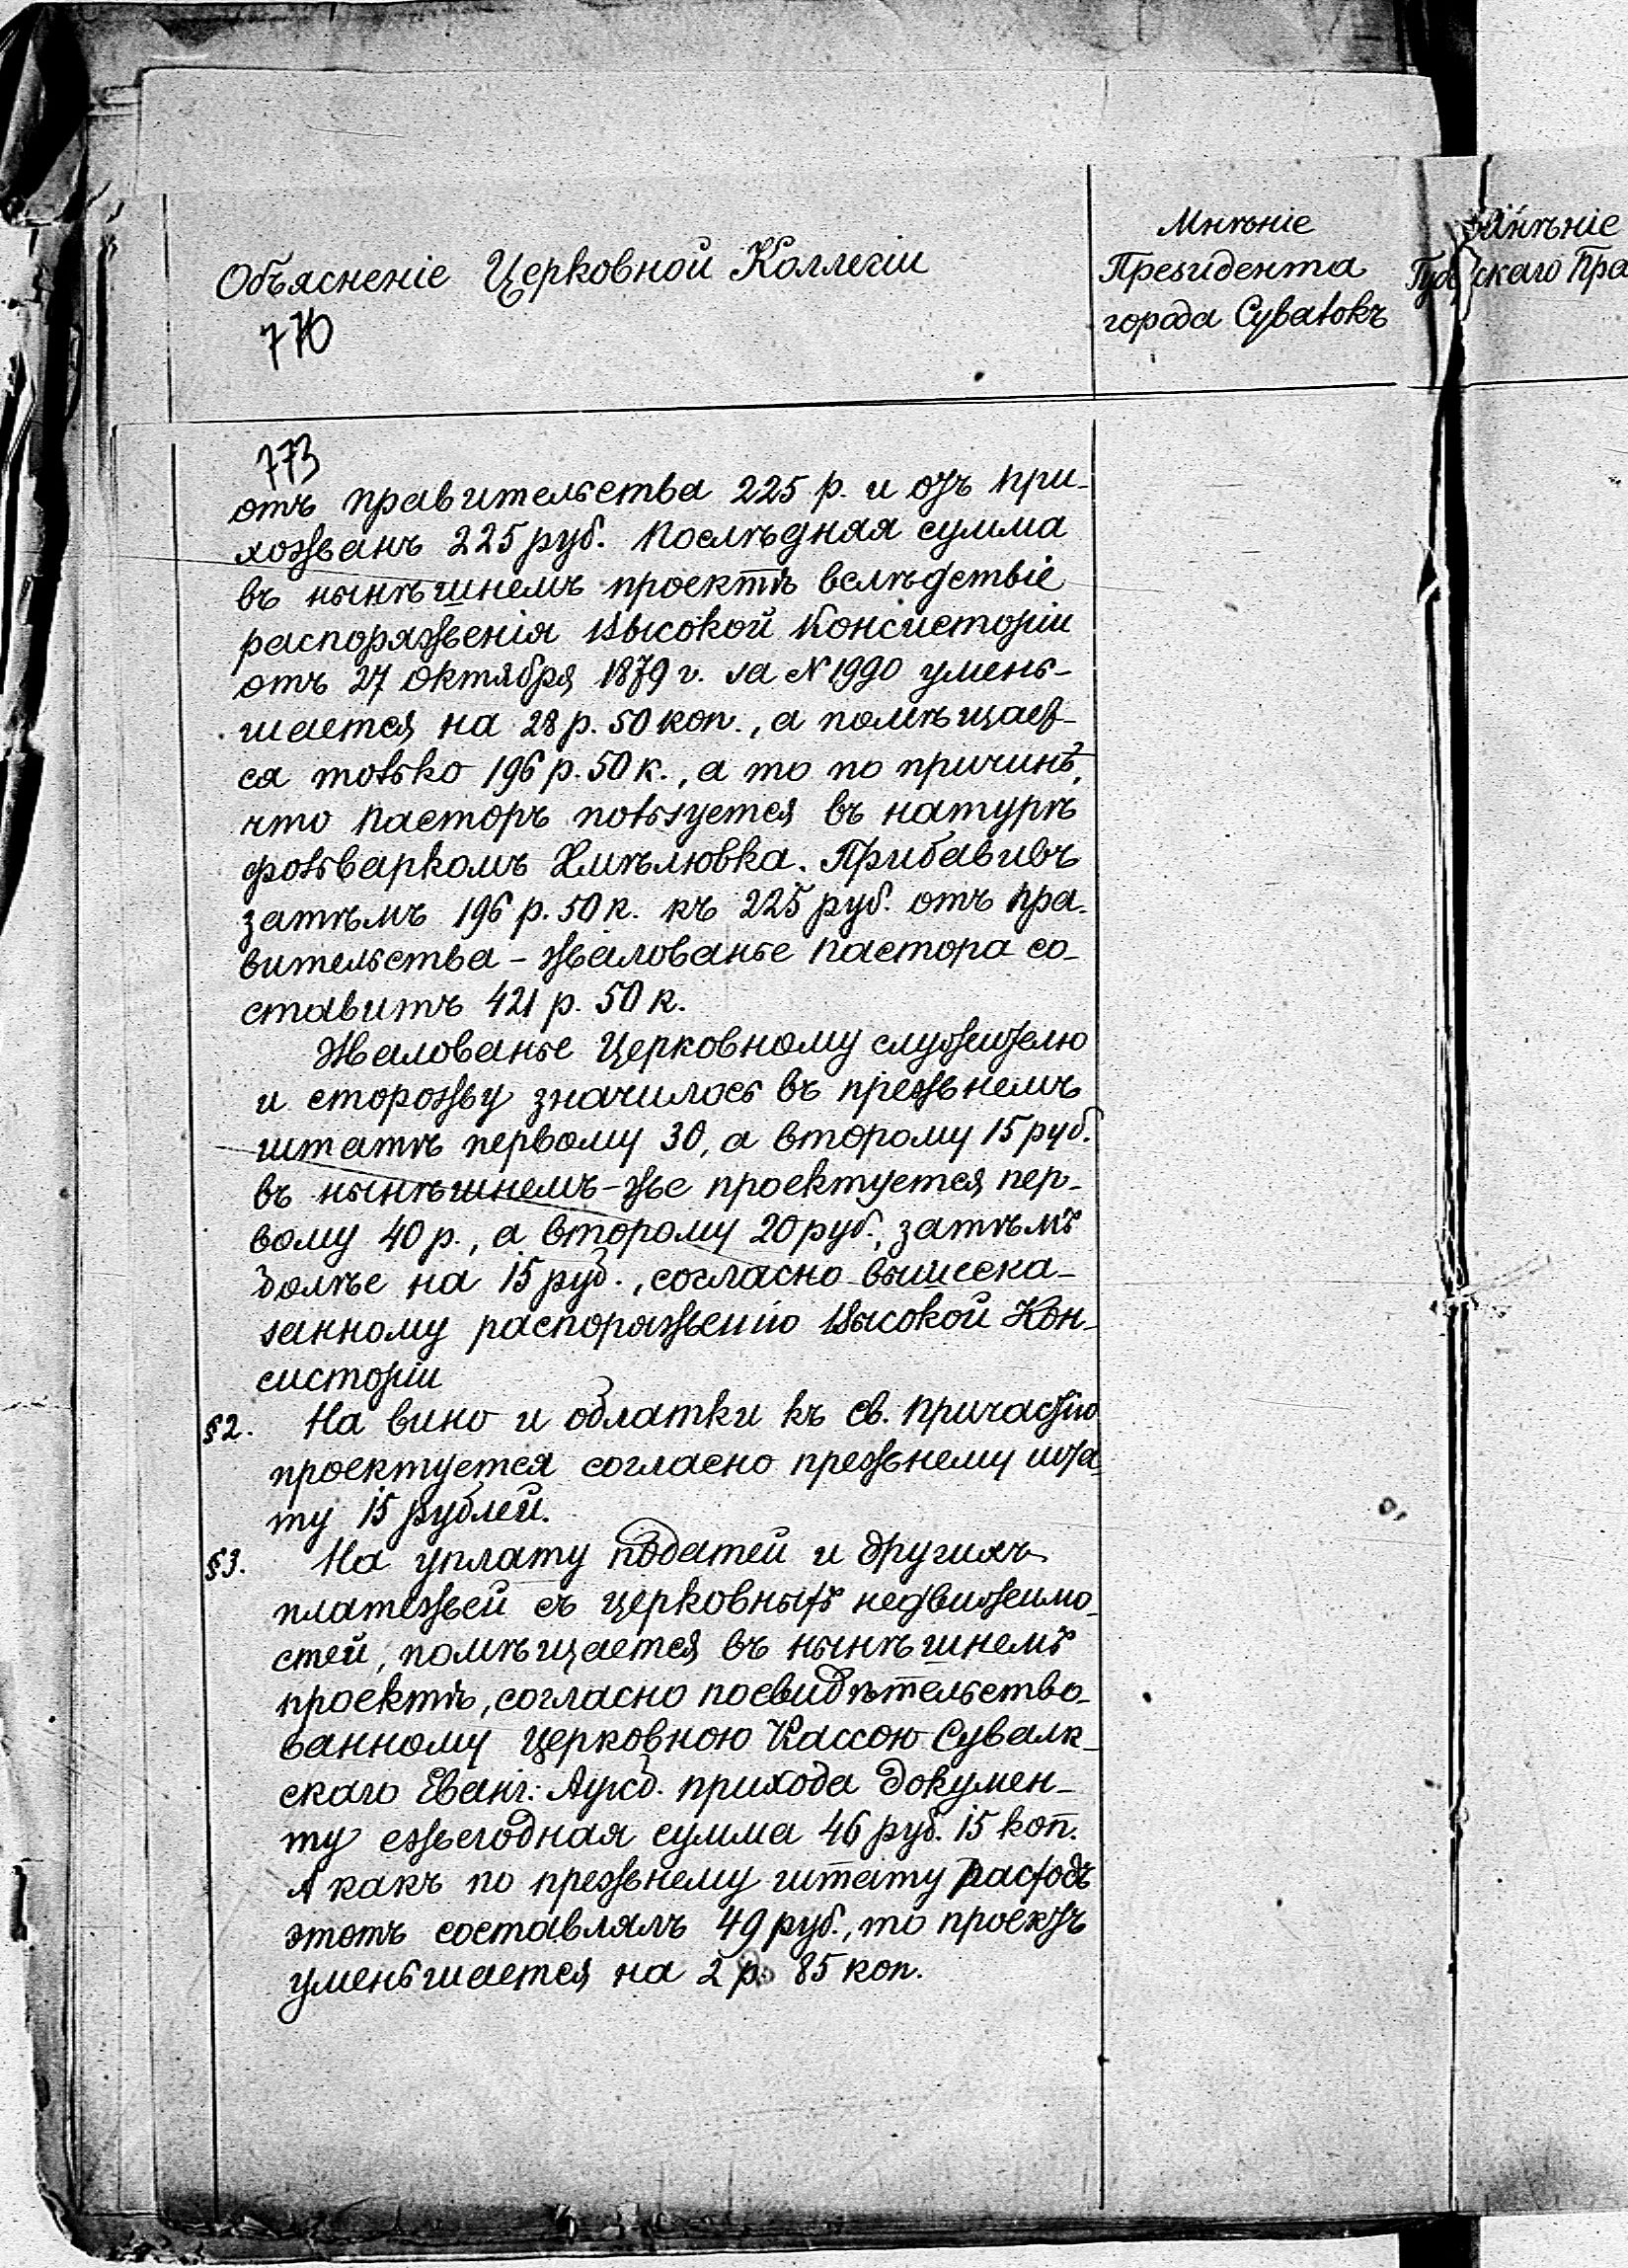 Объясненіе Церковной Коллегіи
770
Мнѣніе
Президента
города Сувалокъ
Мнѣніе
скаго Пра
773
отъ правительства 225 р. и отъ при-
хожанъ 225 руб. Послѣдняя сумма
въ нынѣшнемъ проектѣ вслѣдствіе
распоряженія Высокой Консисторіи
отъ 27 Октября 1879 г. за N 1990 умень-
шается на 28 р. 50 коп., а помѣщает-
ся только 196 р. 50 к., а то по причинѣ,
что пасторъ пользуется въ натурѣ
фольваркомъ Хмѣлювка. Прибавивъ
затѣмъ 196 р. 50 к. къ 225 руб. отъ пра-
вительства - жалованье пастора со-
ставитъ 421 р. 50 к.
Жалованье Церковному служителю
и сторожу значилось въ прежнемъ
штатѣ первому 30, а второму 15 руб.
въ нынѣшнемъ-же проектуется пер-
вому 40 р., а второму 20 руб., затѣмъ
болѣе на 15 руб., согласно вышеска-
занному распоряженію Высокой Кон-
систоріи
§2. На вино и облатки къ св. Причастію
проектуется согласно прежнему шта-
ту 15 рублей.
§3. На уплату податей и другихъ
платежей съ церковныхъ недвижимо-
стей, помѣщается въ нынѣшнемъ
проектѣ, согласно посвидѣтельство-
ванному Церковною Кассою Сувалк-
скаго Еванг: Аугсб. прихода докумен-
ту ежегодная сумма 46 руб. 15 коп.
А какъ по прежнему штату расходъ
этотъ составлялъ 49 руб., то проектъ
уменьшается на 2 р. 85 коп.